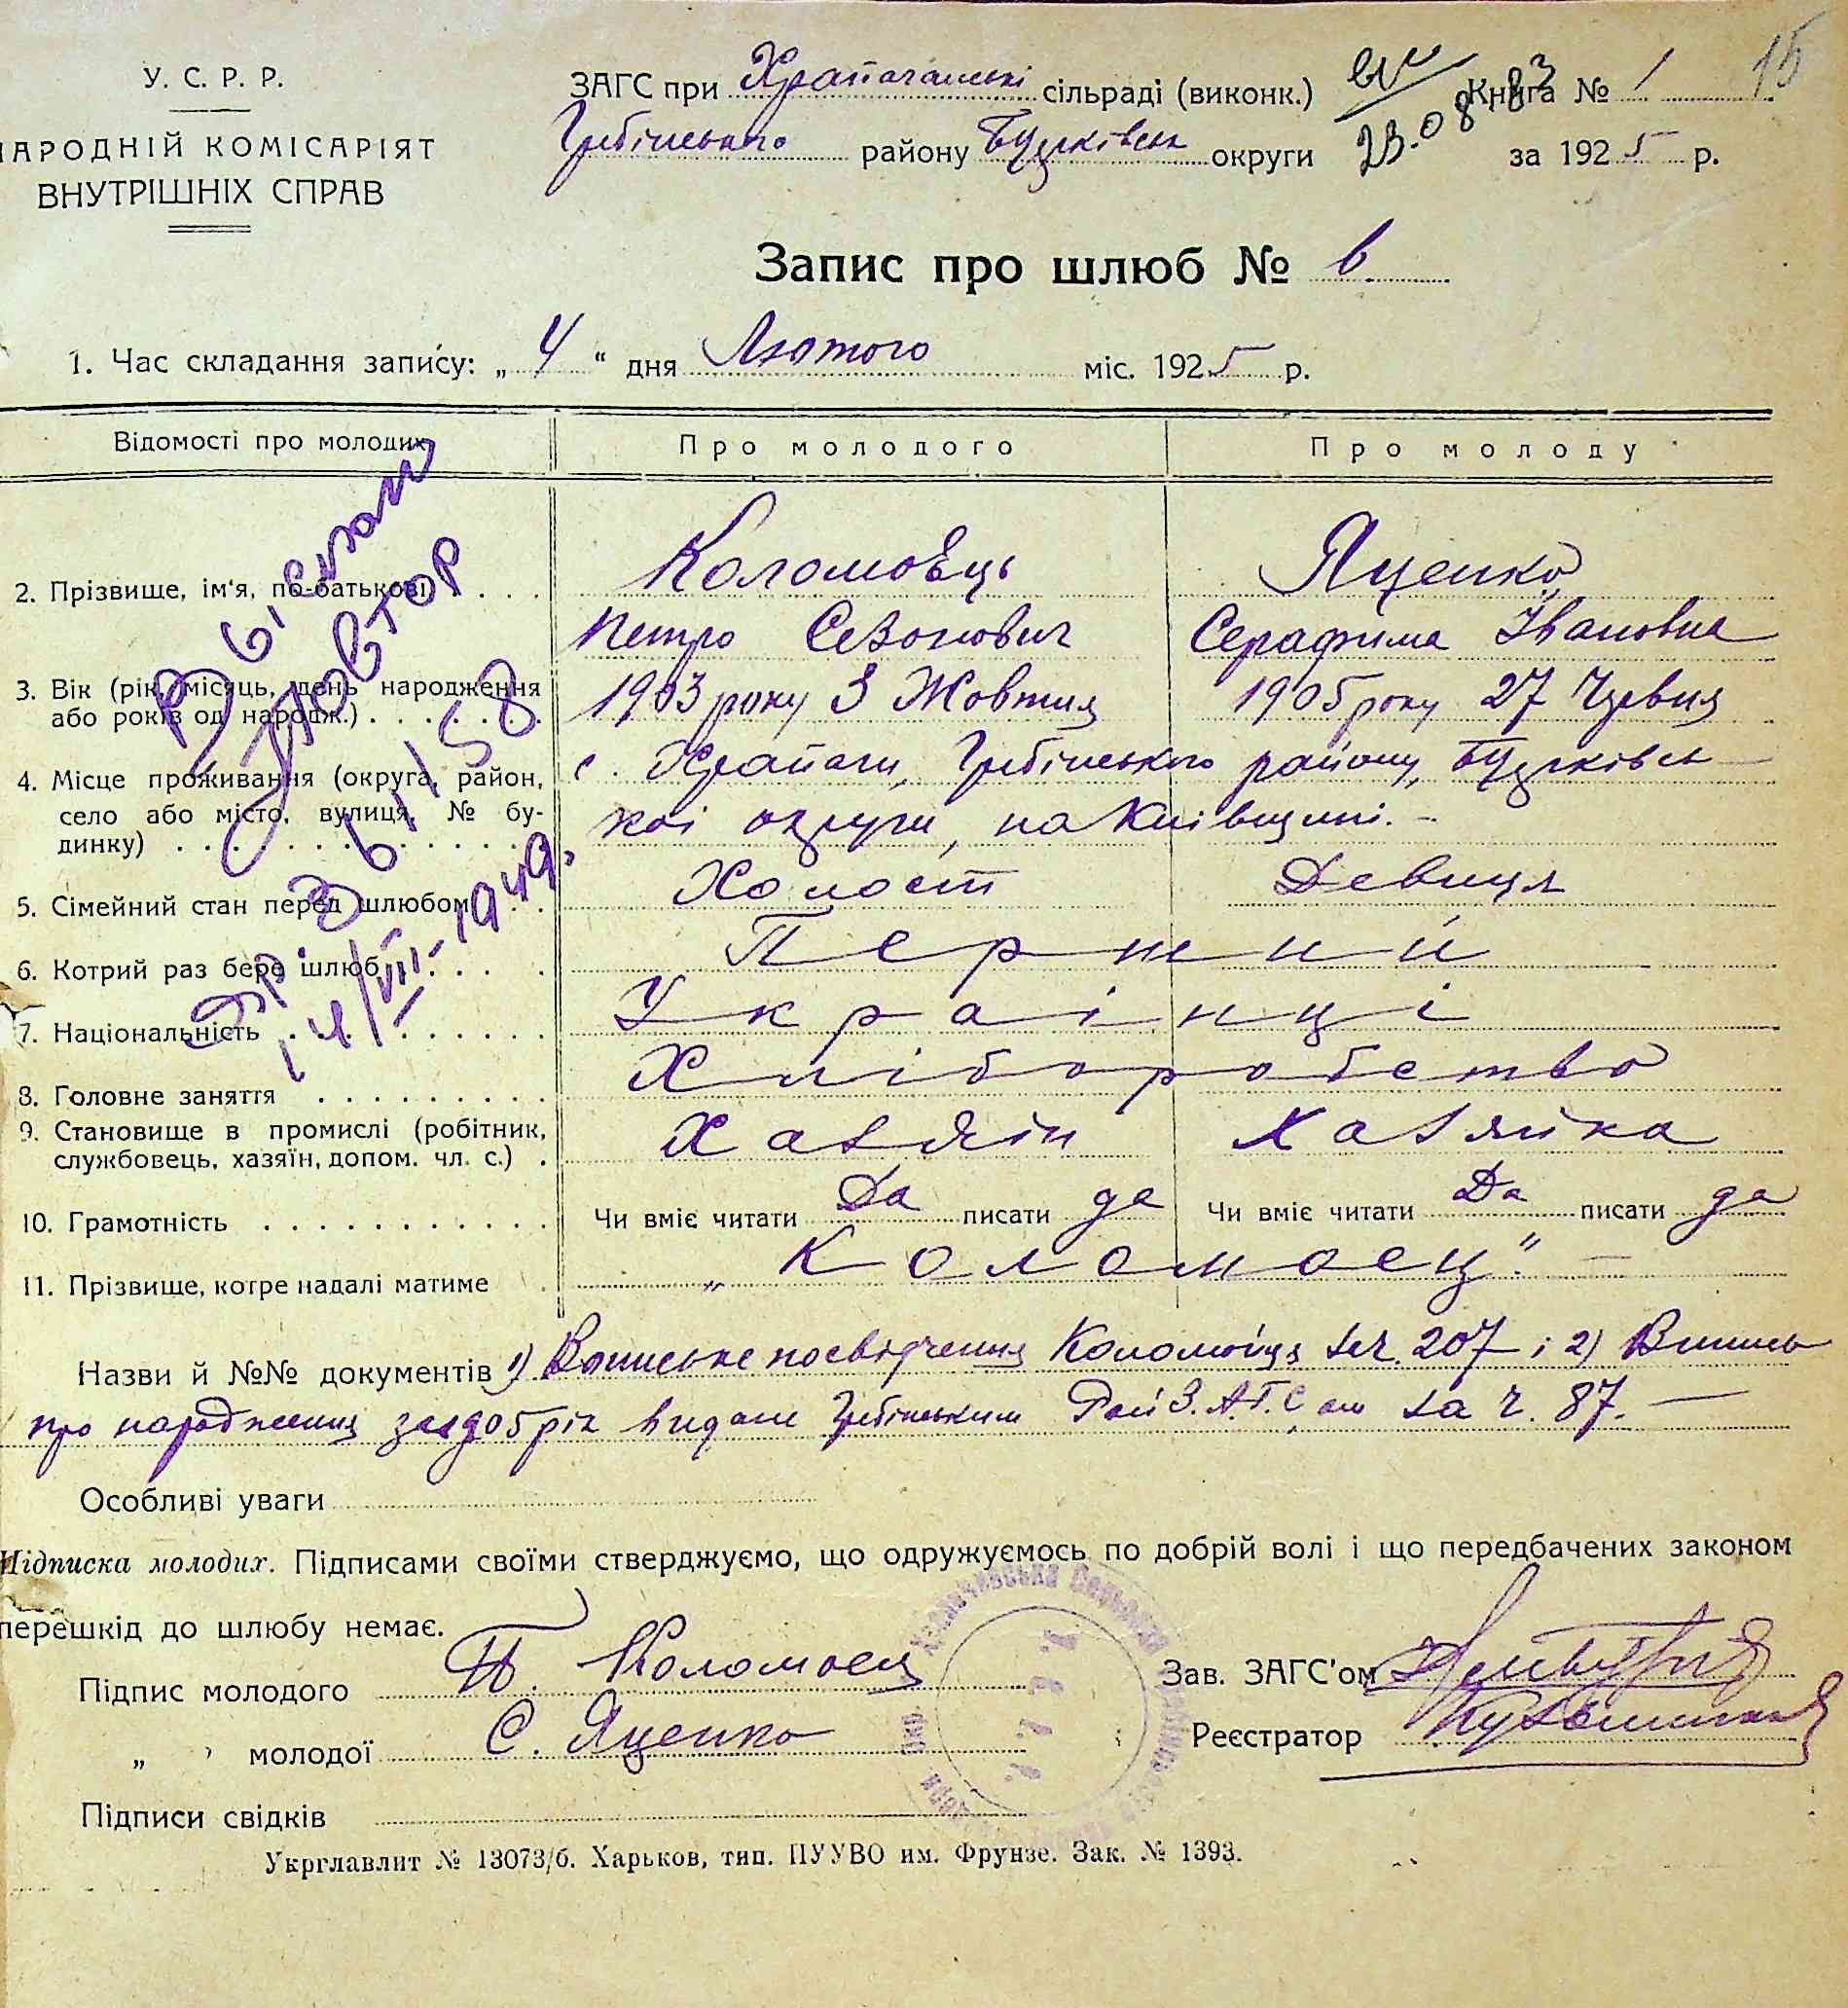 15
У. С. Р. Р.
НАРОДНІЙ КОМІСАРІЯТ
ВНУТРІШНІХ СПРАВ
ЗАГС при сільраді (виконк.) Книга № 1
району округи за 1925 р.
23.08.83
Запис про шлюб № 6
1. Час складання запису: „ 4 “ дня Лютого міс. 1925 р.
Відомості про молодих Про молодого Про молоду
2. Прізвище, ім'я, по-батькові Коломоєць Яценко
Петро Сезонович Серафима Івановна
3. Вік (рік, місяць, день народження 1903 року 3 Жовтня 1905 року 27 Червня
або років од народж.)
4. Місце проживання (округа, район, с. району,
село або місто, вулиця, № бу- округи, на Київщині.-
динку)
5. Сімейний стан перед шлюбом Холост Девиця
6. Котрий раз бере шлюб Перший
7. Національність Українці
8. Головне заняття Хліборобство
9. Становище в промислі (робітник, Хазяін Хазяйка
службовець, хазяїн, допом. чл. с.)
10. Грамотність Чи вміє читати Да писати да Чи вміє читати Да писати да
11. Прізвище, котре надалі матиме „Коломоец".-
Назви й №№ документів 1) посвідчення 207 і 2) Виписъ
про народження видані за ч. 87.-
Особливі уваги
Підписка молодих. Підписами своїми стверджуємо, що одружуємось по добрій волі і що передбачених законом
перешкід до шлюбу немає.
Підпис молодого П. Коломоец Зав. ЗАГС'ом
„ молодої С. Яценко Реєстратор
Підписи свідків
Укрглавлит № 13073/б. Харьков, тип. ПУУВО им. Фрунзе. Зак. № 1393.
Выслан
повтор
14/VIII-1949.